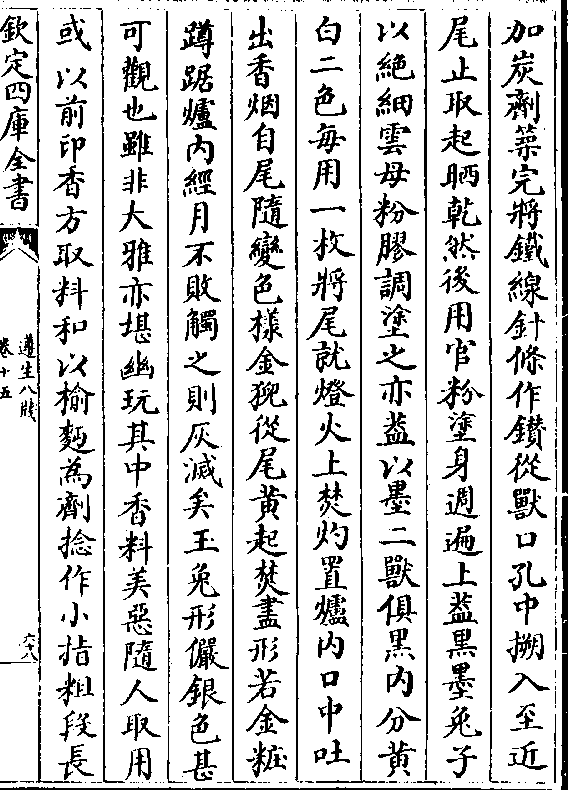 加炭劑築完將鐵線針條作鑚從獸口孔中搠入至近
尾止取起晒乾然後用官粉塗身週遍上盖黒墨兎子
以絶細雲母粉膠調塗之亦盖以墨二獸俱黒内分黄
白二色每用一枚將尾就燈火上焚灼置爐内口中吐
出香烟自尾隨變色様金猊從尾黄起焚盡形若金粧
蹲踞爐内經月不敗觸之則灰滅矣玉兎形儼銀色甚
可觀也雖非大雅亦堪幽玩其中香料美惡隨人取用
或以前印香方取料和以榆麪為劑捻作小指粗段長
欽定四庫全書
遵生八牋
卷十五
六十八